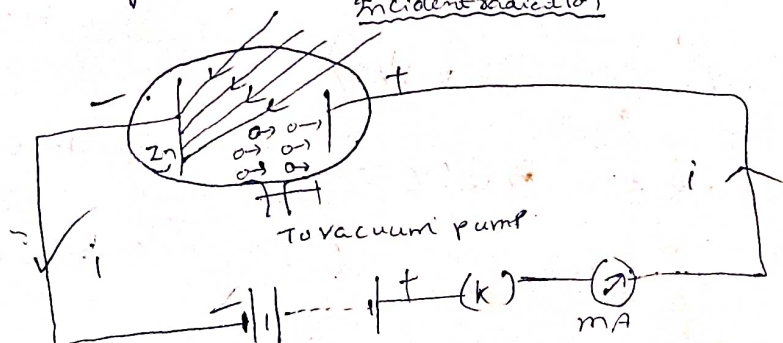 Incident radiation
- +
Zn
i
To vacuum pump
- i
- + (K)
mA